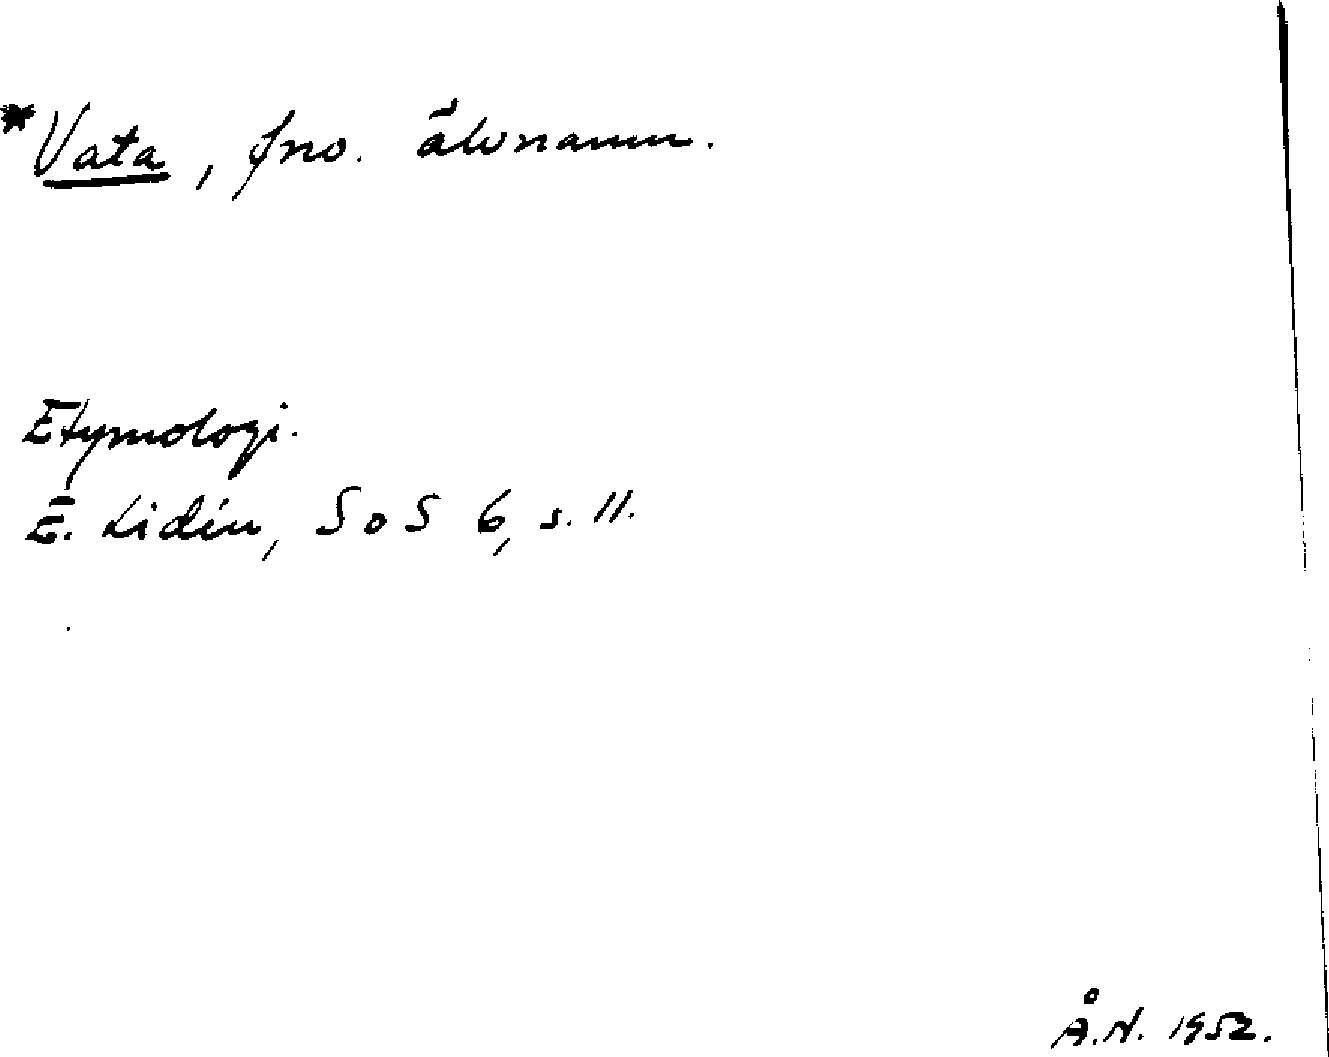 *Vata, fno. älvnamn.
Etymologi.
E. Lidén, SoS 6, s. 11.
Å.N. 1952.